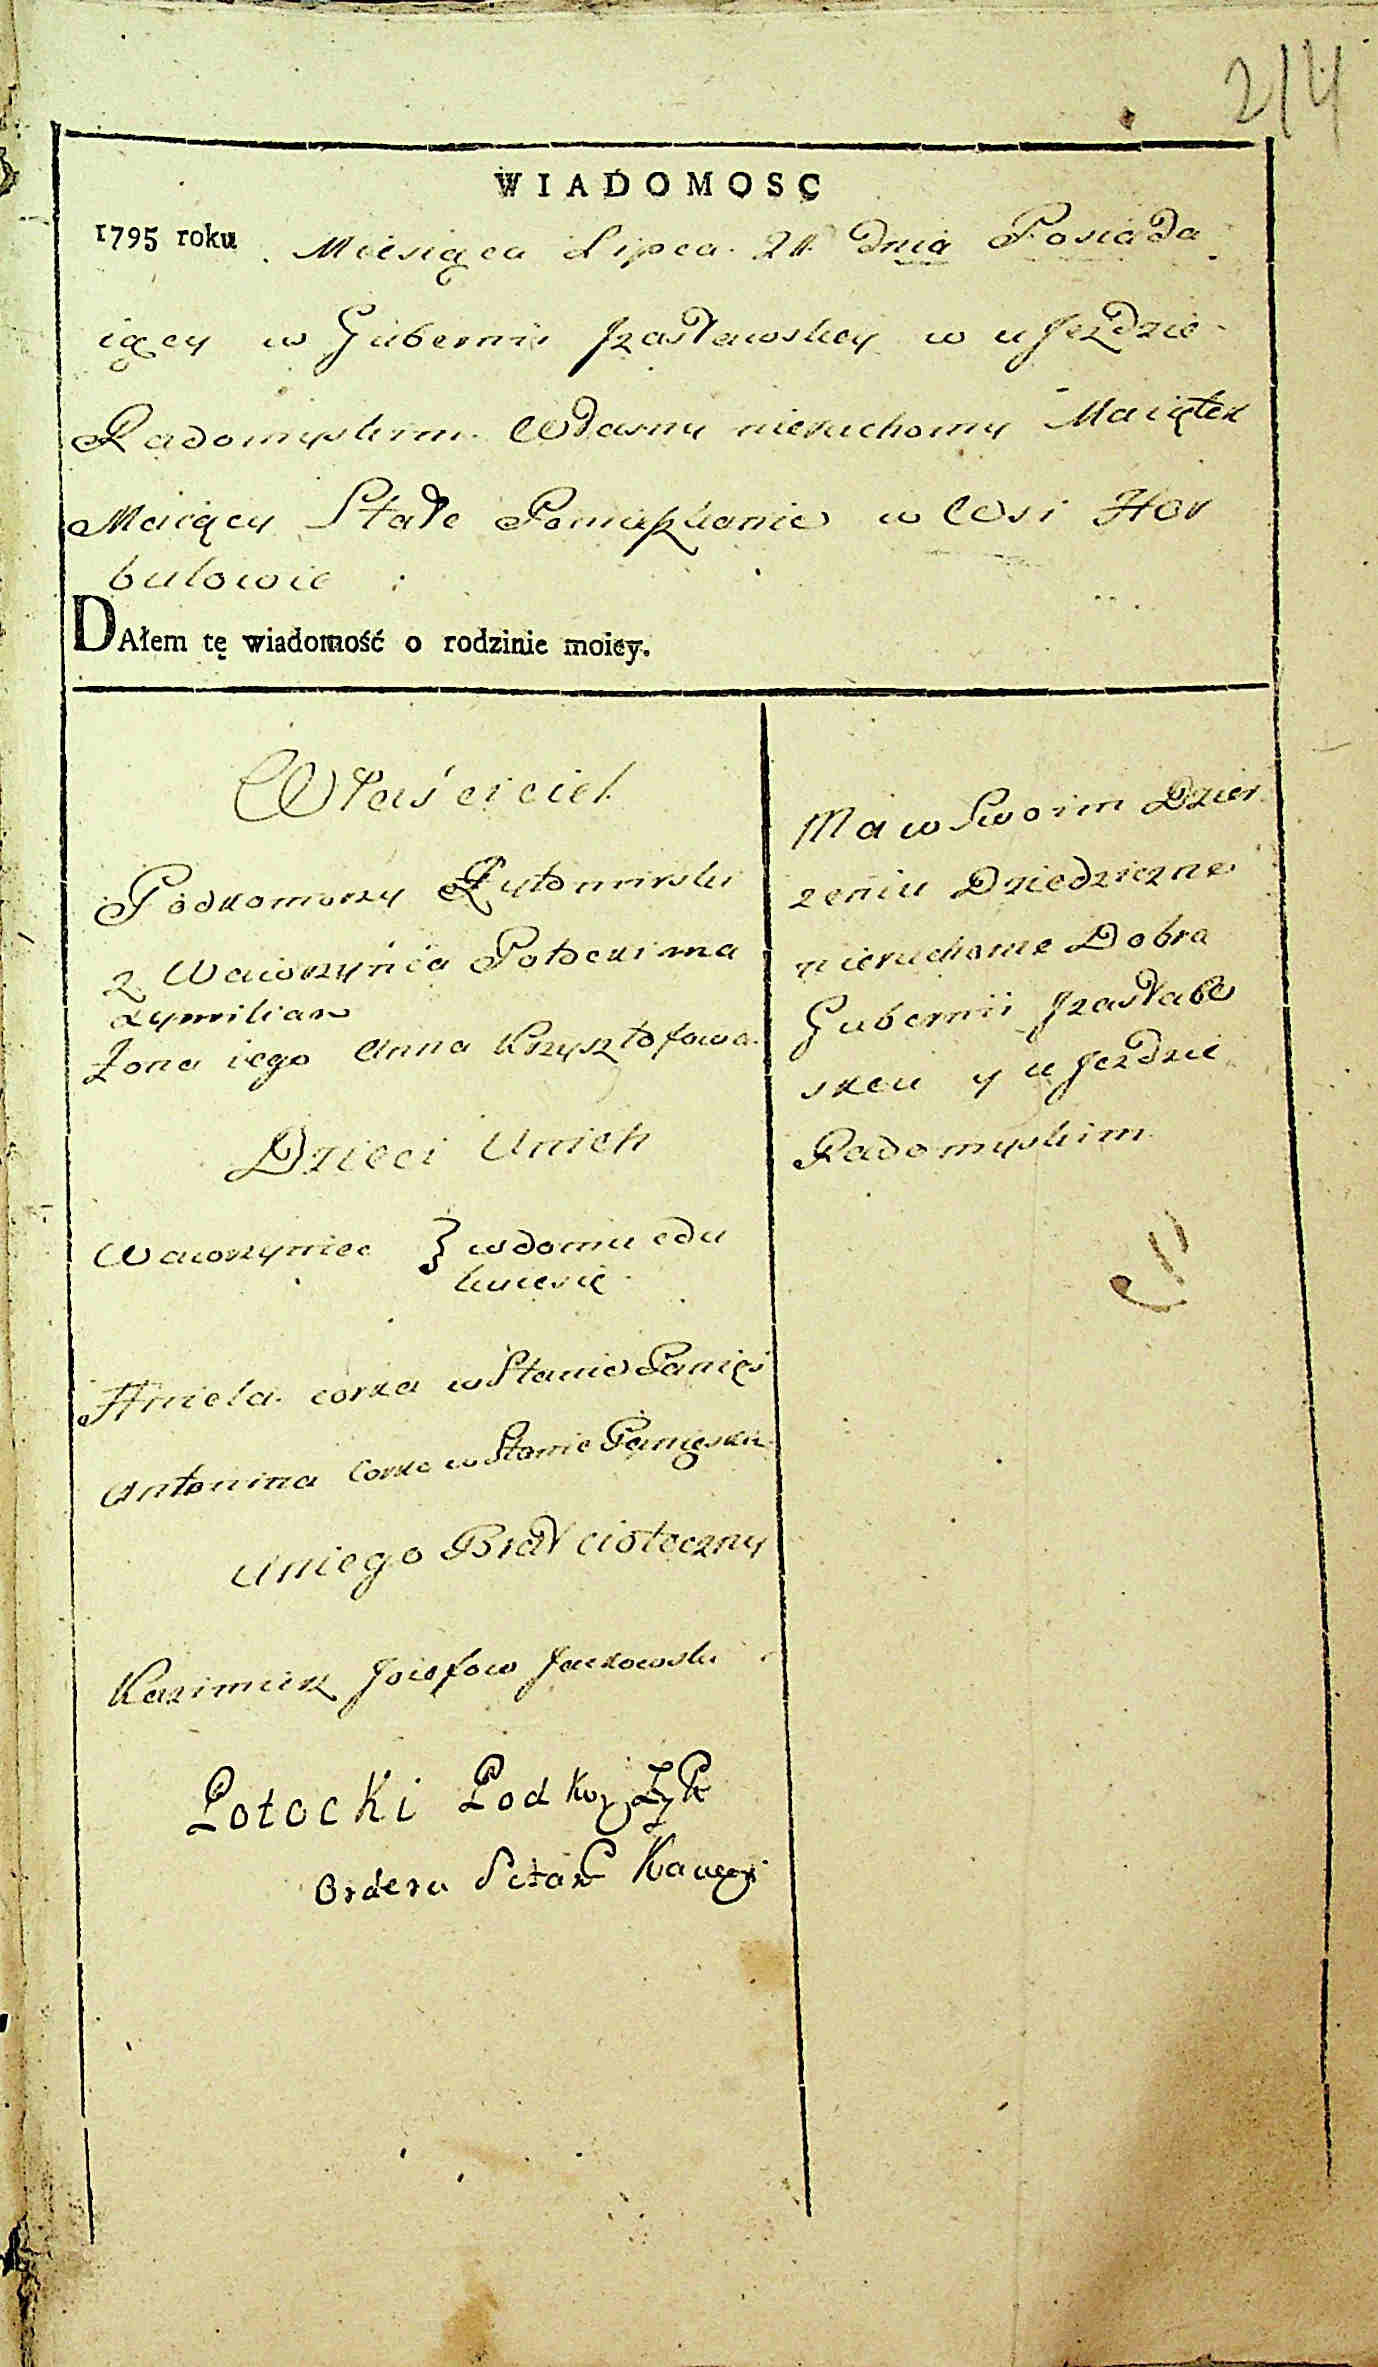 214
WIADOMOSC
1795 roku Miesiąca Lipca 24 dnia Posiada
iący w Gubernii Izasławskiey w ujeździe
Radomyskim Własny nieruchomy Maiątek
Maiący Stałe Pomieszkanie w Wsi Hor
bulowie
DAłem tę wiadomość o rodzinie moiey.
Właściciel
Podkomorzy Żytomirski
z Wawrzyńca Potocki ma
xymilian
Żona iego Anna Krzysztofowa
Dzieci Unich
Wawrzyniec } w domu edu
kuiesię
Aniela corka w Stanie Panięś
Antonina Corka w Stanie Panięskim
Uniego Brat cioteczny
Kazimierz Joiefow Jackowski
Potocki Podko Zy Pt
Orderu S Kawer
Ma w Swoim Dzier
żeniu Dziedziczne
nieruchome Dobra
Gubernii Izasław
skeu y ujeździe
Radomyskim